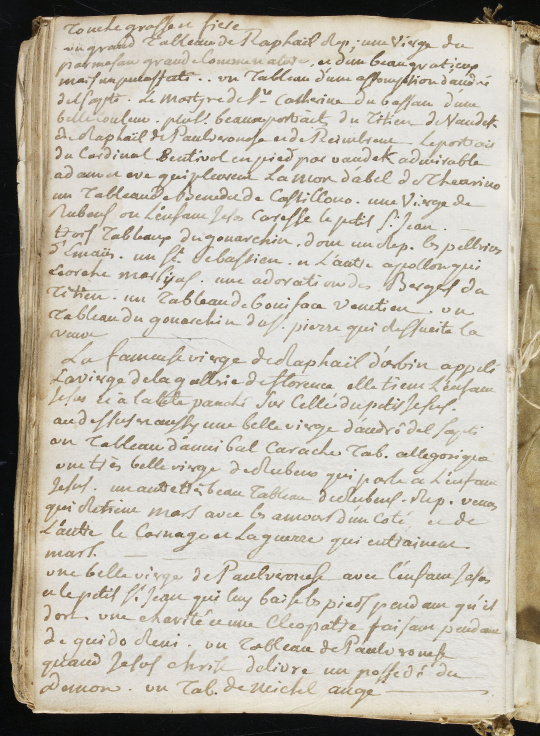 Touche grasse et fiere
un grand Tableau de Raphail Rep; une Vierge du
parmesan grande comme nature. et d'un beau gratieux
mais un peu . un Tableau d'une assomption d'andré
del sapte. Le Martyre de Ste Catherine du bassan d'une
belle couleur. plus. beaux portrait du Titien de Vandek
de Raphail de Paulveronese et de Reimbrens. Le portrais
du Cardinal Bentivol en pied par vandek admirable
adam et eve qui pleurent La Mor d'abel de
un Tableau de benedette de Castillono. une Vierge de
Rubens ou L'enfant Jesus Caresse le petit St Jean. —
trois Tableaux du gouarchin. dont un Rep. les pellerins
d'Emaüs. un St Sebastien. et L'autre apollon qui
Ecorche Marsyas. une adoration des Bergers du
Titien. un Tableau de boniface Venetien. un
Tableau du gouarchin du s. pierre qui ressucite la
veuve
La fameuse vierge de Raphail d'orbin appelé
La vierge de la gallerie de florence elle tient L'enfant
Jesus et a la tete panché sur celle du petit Jesus.
au dessus une belle vierge d'andré del sapti
un Tableau d'annibal Carache Tab. allegorique
une très belle vierge de Rubens qui parle a L'enfant
Jesus. un autre très beau Tableau de Rubens. Rep. venus
qui retient Mars avec les amours d'un coté et de
L'autre le Carnage et La guerre qui entrainent
mars. —
une belle vierge de Paulveronese avec l'enfant Jesus
et le petit St Jean qui luy baise les pieds pendant qu'il
dort. une charité et une Cleopatre faisant pendant
de guido Reni. un Tableau de Paulveronese
quand Jesus christ delivre un possedé du
Demon. un Tab. de Michel ange —